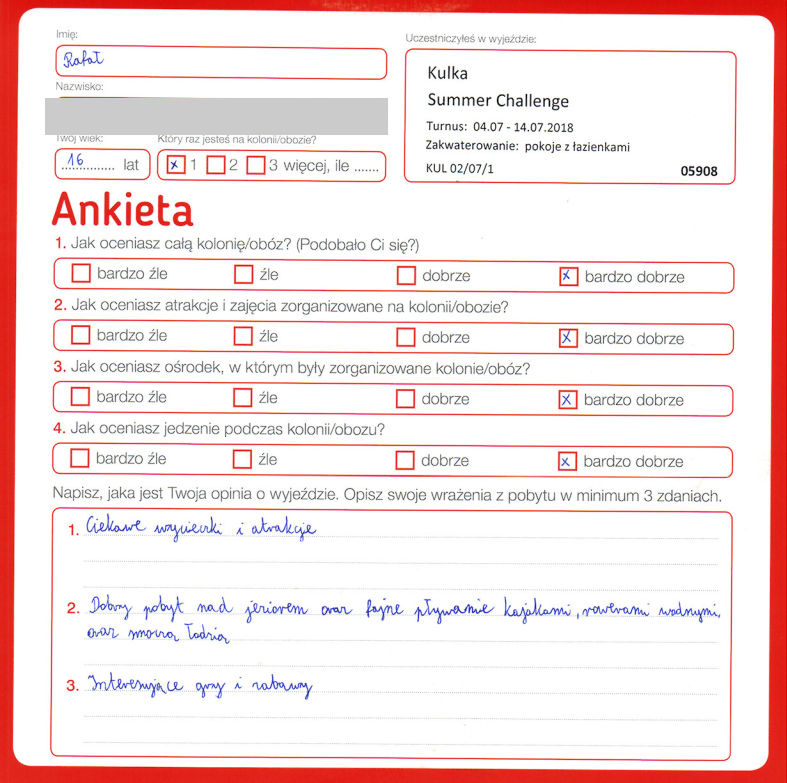 Imię:
Rafał
Uczestniczyłeś w wyjeździe:
Kulka
Summer Challenge
Turnus: 04.07 - 14.07.2018
Zakwaterowanie: pokoje z łazienkami
KUL 02/07/1 05908
Nazwisko:
Twój wiek:
16 lat
Który raz jesteś na kolonii/obozie?
x 1 2 3 więcej, ile .......
Ankieta
1. Jak oceniasz całą kolonię/obóz? (Podobało Ci się?)
bardzo źle źle dobrze x bardzo dobrze
2. Jak oceniasz atrakcje i zajęcia zorganizowane na kolonii/obozie?
bardzo źle źle dobrze x bardzo dobrze
3. Jak oceniasz ośrodek, w którym były zorganizowane kolonie/obóz?
bardzo źle źle dobrze x bardzo dobrze
4. Jak oceniasz jedzenie podczas kolonii/obozu?
bardzo źle źle dobrze x bardzo dobrze
Napisz, jaka jest Twoja opinia o wyjeździe. Opisz swoje wrażenia z pobytu w minimum 3 zdaniach.
1. Ciekawe wycieczki i atrakcje
2. Dobry pobyt nad jeziorem oraz fajne pływanie kajakami, rowerami wodnymi,
oraz smoczą łodzią
3. Interesujące gry i zabawy